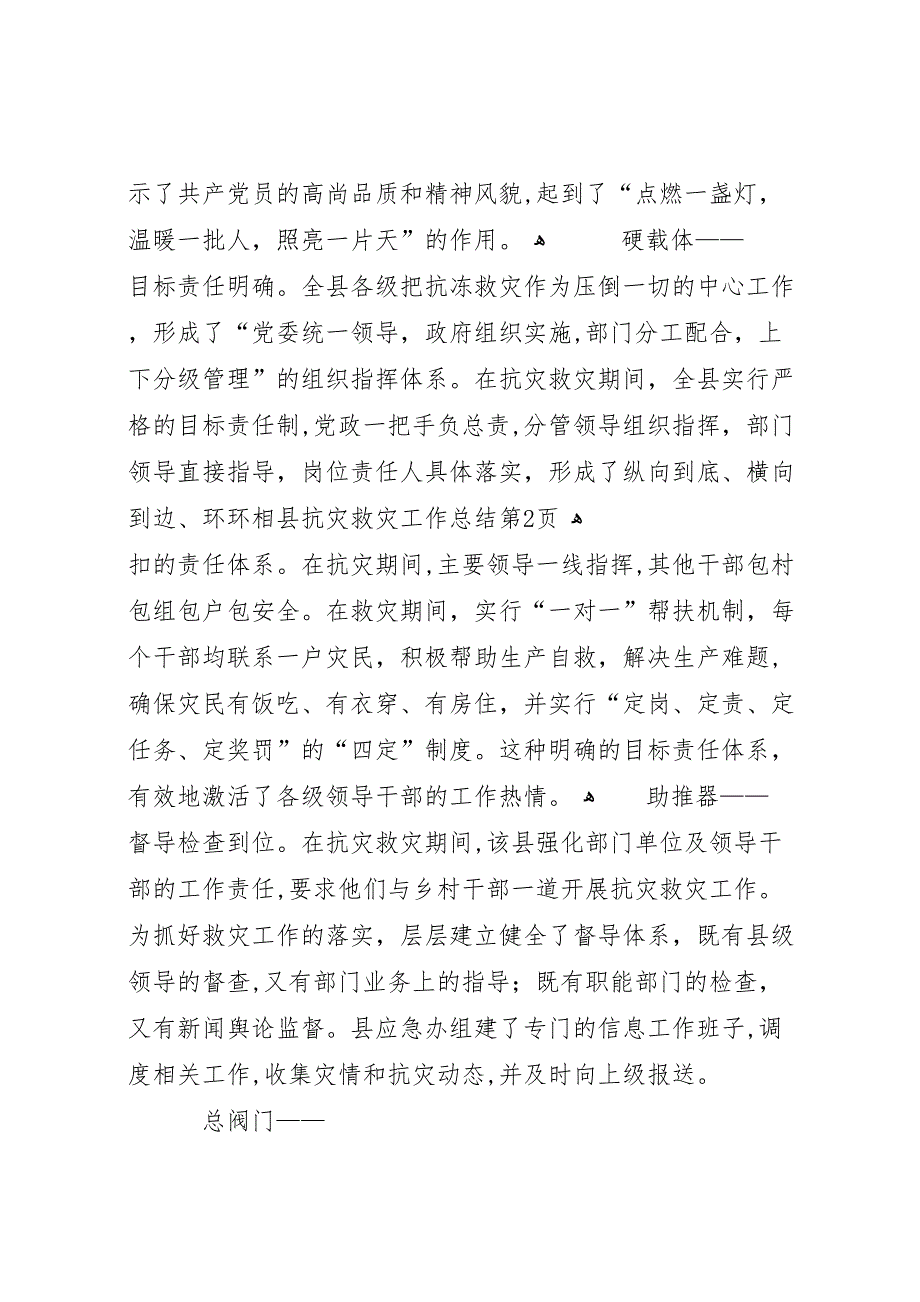 示了共产党员的高尚品质和精神风貌,起到了“点燃一盏灯，
温暖一批人，照亮一片天”的作用。 ﻫ 硬载体——
目标责任明确。全县各级把抗冻救灾作为压倒一切的中心工作
，形成了“党委统一领导，政府组织实施,部门分工配合，上
下分级管理”的组织指挥体系。在抗灾救灾期间，全县实行严
格的目标责任制,党政一把手负总责,分管领导组织指挥，部门
领导直接指导，岗位责任人具体落实，形成了纵向到底、横向
到边、环环相县抗灾救灾工作总结第2页 ﻫ
扣的责任体系。在抗灾期间,主要领导一线指挥,其他干部包村
包组包户包安全。在救灾期间，实行“一对一”帮扶机制，每
个干部均联系一户灾民，积极帮助生产自救，解决生产难题,
确保灾民有饭吃、有衣穿、有房住，并实行“定岗、定责、定
任务、定奖罚”的“四定”制度。这种明确的目标责任体系，
有效地激活了各级领导干部的工作热情。 ﻫ 助推器——
督导检查到位。在抗灾救灾期间,该县强化部门单位及领导干
部的工作责任,要求他们与乡村干部一道开展抗灾救灾工作。
为抓好救灾工作的落实，层层建立健全了督导体系，既有县级
领导的督查,又有部门业务上的指导；既有职能部门的检查，
又有新闻舆论监督。县应急办组建了专门的信息工作班子,调
度相关工作,收集灾情和抗灾动态,并及时向上级报送。
总阀门——